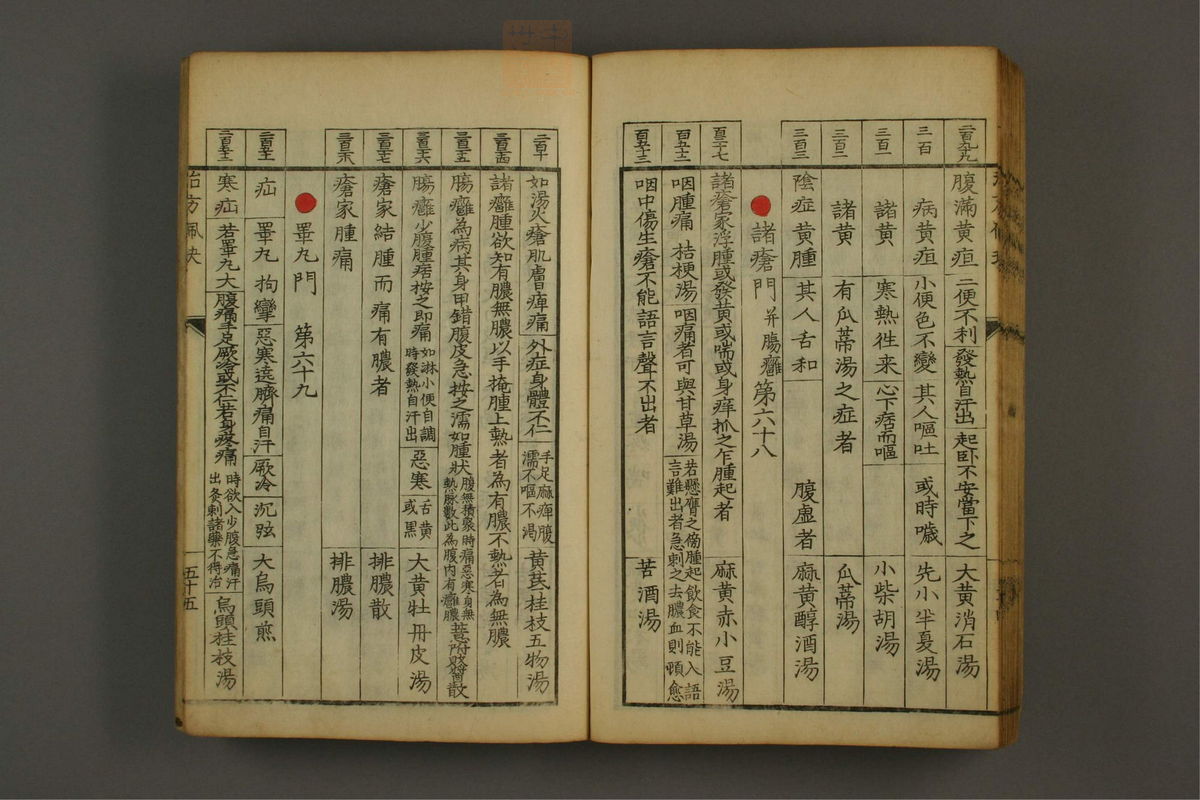 二百九十九 腹滿黄疸 二便不利 發熱自汗出 起卧不安當下之 大黄消石湯
三百 病黄疸 小便色不變 其人嘔吐 或時噦 先小半夏湯
三百一 諸黄 寒熱徃来 心下痞而嘔 小柴胡湯
三百二 諸黄 有瓜蒂湯之症者 瓜蒂湯
三百三 陰症黄腫 其人舌和 腹虚者 麻黄醇酒湯
諸瘡門 并腸癰 第六十八
諸瘡家浮腫或發黄或喘或身痒抓之乍腫起者 麻黄赤小豆湯
咽腫痛 桔梗湯 咽痛者可與甘草湯 若懸癰之傍腫起飲食不能入語言難出者急刺之去膿血則頓愈
百五十三 咽中傷生瘡不能語言聲不出者 苦酒湯
如湯火瘡肌膚痺痛 外症身體不仁 手足麻痺腹濡不嘔不渴 黄芪桂枝五物湯
諸癰腫欲知有膿無膿以手掩腫上熱者為有膿不熱者為無膿
腸癰為病其身甲錯腹皮急按之濡如腫状 腹無積聚時痛惡寒身無熱脉數此為腹内有癰膿 薏附敗醬散
腸癰少腹腫痞按之即痛 如淋小便自調時發熱自汗出 惡寒 舌黄或黒 大黄牡丹皮湯
瘡家結腫而痛有膿者 排膿散
瘡家腫痛 排膿湯
睪丸門 第六十九
疝 睪丸拘攣 惡寒遶臍痛自汗 厥冷 沉弦 大烏頭煎
寒疝 若睪丸大 腹痛手足厥冷或不仁若身疼痛 時欲入少腹急痛汗出灸刺諸藥不得治 烏頭桂枝湯
五十五